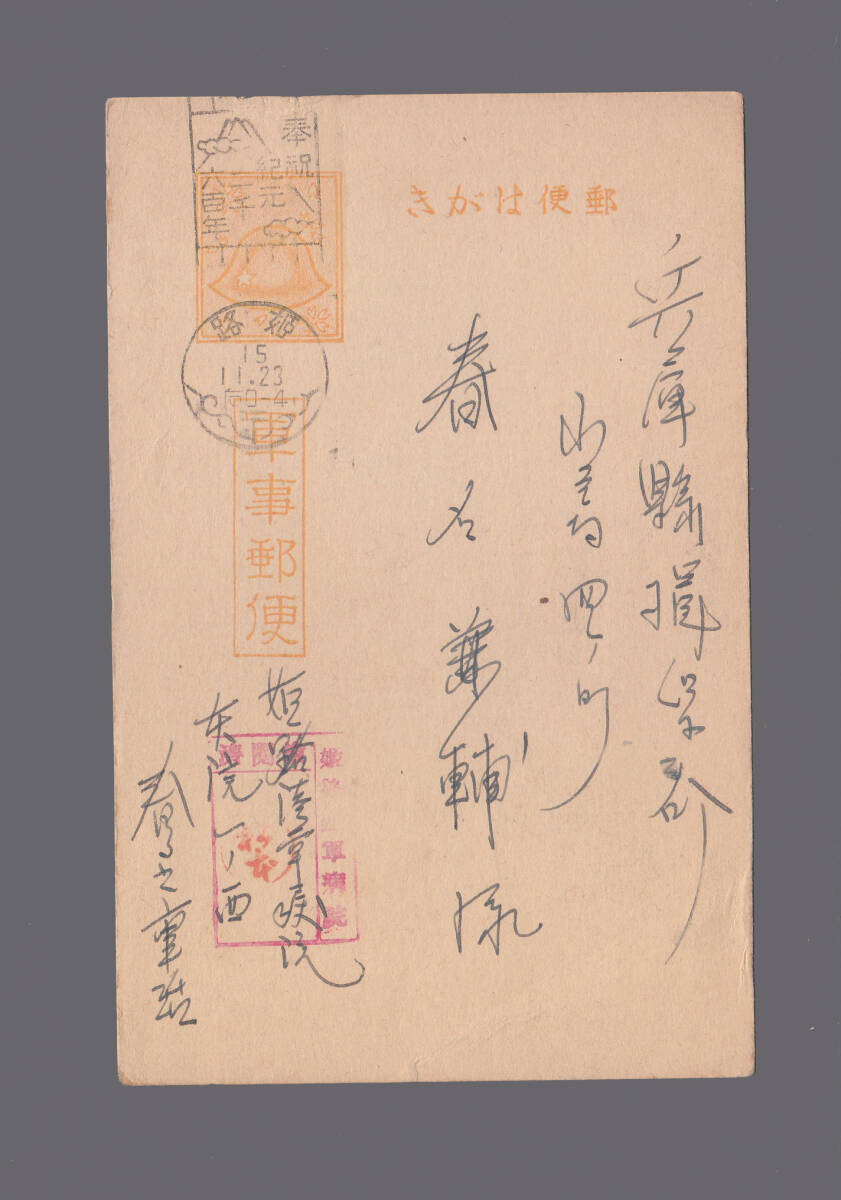 郵便はがき
奉祝
紀元
二千
六百年
姫路
15
11.23
后0-4
軍事郵便
兵庫縣揖保郡
山崎町
春名兼輔様
姫路陸軍病院
東院一ノ西
検閲済
姫路陸軍病院